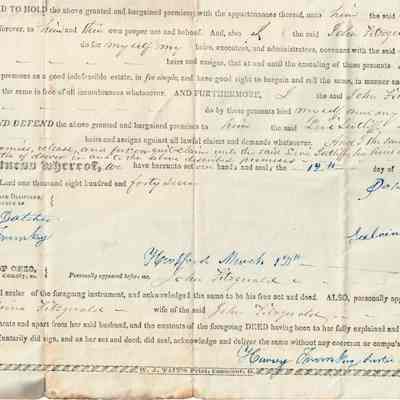 D TO HOLD the above granted and bargained premises, with the appurtenances thereof, unto him the said
forever, to him and their own proper use and behoof. And, also I the said John Fitzgerald
do for myself my heirs, executors, and administrators, covenant with the said
heirs and assigns, that at and until the ensealing of these presents
premises as a good indefeasible estate, in fee simple; and have good right to bargain and sell the same, in manner and
the same is free of all incumbrances whatsoever. AND FURTHERMORE, I the said John Fitz
do by these presents bind myself and my
ND DEFEND the above granted and bargained premises to him the said Levi Sutliff
heirs and assigns against all lawful claims and demands whatsoever. And I the said
remise, release, and forever quit-claim unto the said Levi Sutliff his heirs
of dower in and to the above described premises
ness whereof, We have hereunto set our hands and seal, the 12th day of
Lord one thousand eight hundred and forty seven
John
Calvin
OF OHIO,
County, ss.
Hartford March 12th
Personally appeared before me,
John Fitzgerald
nd sealer of the foregoing instrument, and acknowledged the same to be his free act and deed. ALSO, personally appe
Fitzgerald wife of the said John Fitzgerald
arate and apart from her said husband, and the contents of the foregoing DEED having been to her fully explained and
luntarily did sign, and as her act and deed, did seal, acknowledge and deliver the same without any coercion or compu
Harvey
W. J. TAIT'S Print, Conneaut, O.